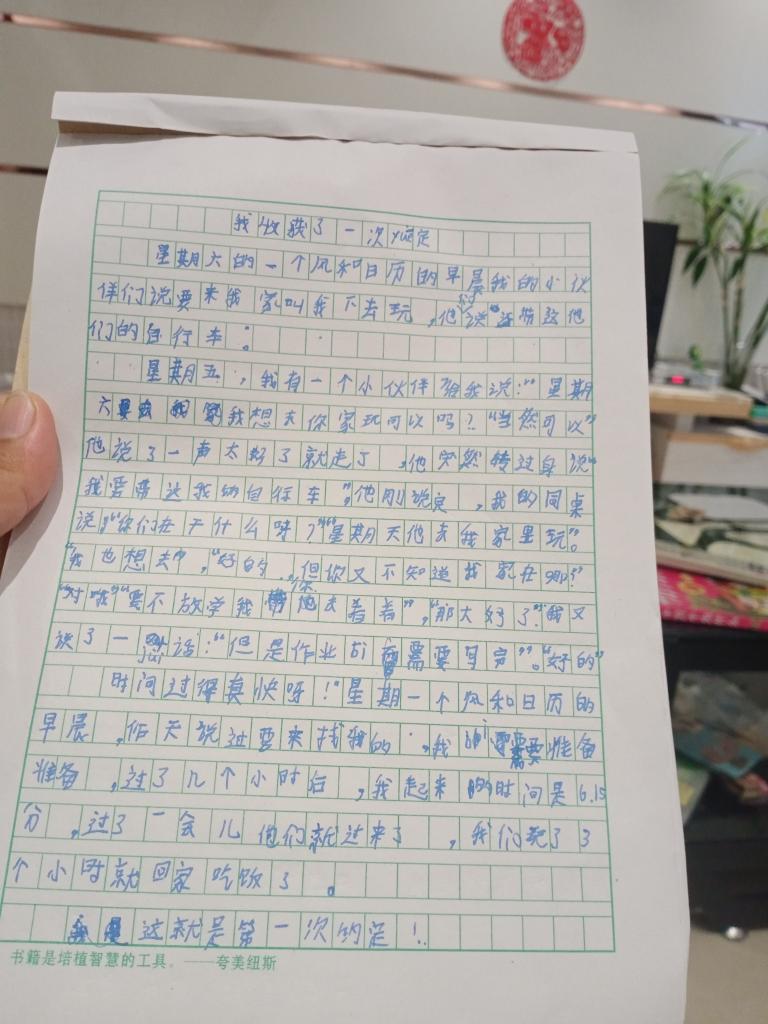 我收获了一次约定
星期六的一个风和日历的早晨我的小伙
伴们说要来我家叫我下去玩，他们说要带这他
们的自行车。
星期五，我有一个小伙伴给我说：“星期
六我想去你家玩可以吗？”“当然可以”
他说了一声太好了就走了，他突然转过身说“
我要带达我的自行车”，他刚说完，我的同桌
说：“你们在干什么呀？”“星期天他去我家里玩”。
“我也想去”，“好的，但你又不知道我家在哪？”
“对哦”“要不放学我带你去看看”，“那太好了”我又
说了一句话：“但是作业前需要写完”。“好的”
时间过得真快呀！”星期一个风和日历的
早晨，昨天说过要来找我的，我们需要准备
准备，过了几个小时后，我起来的时间是6.15
分，过了一会儿他们就过来了，我们玩了3
个小时就回家吃饭了。
这就是第一次约定！
书籍是培植智慧的工具。——夸美纽斯